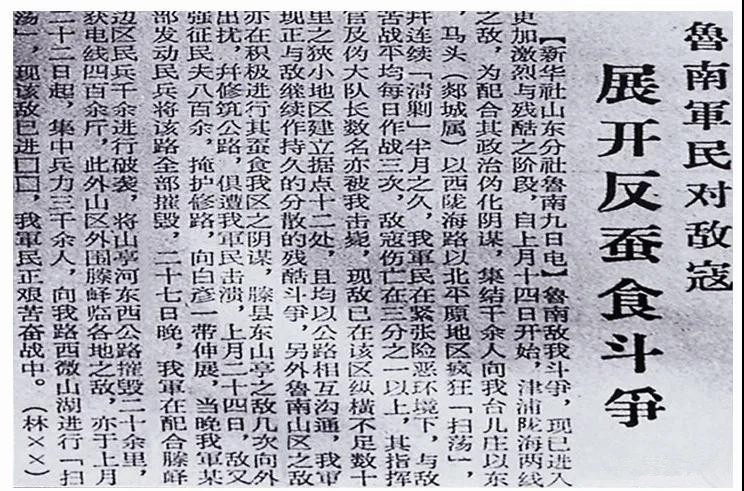 魯南軍民对敌寇
展开反蚕食斗爭
【新华社山东分社鲁南九日电】鲁南敌我斗爭，现已进入
更加激烈与残酷之阶段，自上月十四日开始，津浦陇海两线
之敌，为配合其政治伪化阴谋，集结千余人向我台儿庄以东
，马头（郯城属）以西陇海路以北平原地区疯狂「扫荡」，
幷连续「清剿」半月之久，我軍民在紧张险恶环境下，与敌
苦战平均每日作战三次，敌寇伤亡在三分之一以上，其指挥
官及伪大队长数名亦被我击毙，现敌已在该区纵横不足数十
里之狭小地区建立据点十二处，且均以公路相互沟通，我軍
现正与敌继续作持久的分散的残酷斗爭，另外鲁南山区之敌
亦在积极进行其蚕食我区之阴谋，滕县东山亭之敌几次向外
出扰，幷修筑公路，俱遭我軍民击溃，上月二十四日，敌又
强征民夫八百余，掩护修路，向白彦一带伸展，当晚我軍某
部发动民兵将该路全部摧毁，二十七日晚，我軍在配合滕峄
边区民兵千余进行破袭，将山亭河东西公路摧毁二十余里，
获电线四百余斤，此外山区外围滕峄临各地之敌，亦于上月
二十二日起，集中兵力三千余人，向我路西微山湖进行「扫
荡」，现该敌已进□□，我軍民正艰苦奋战中。（林××）